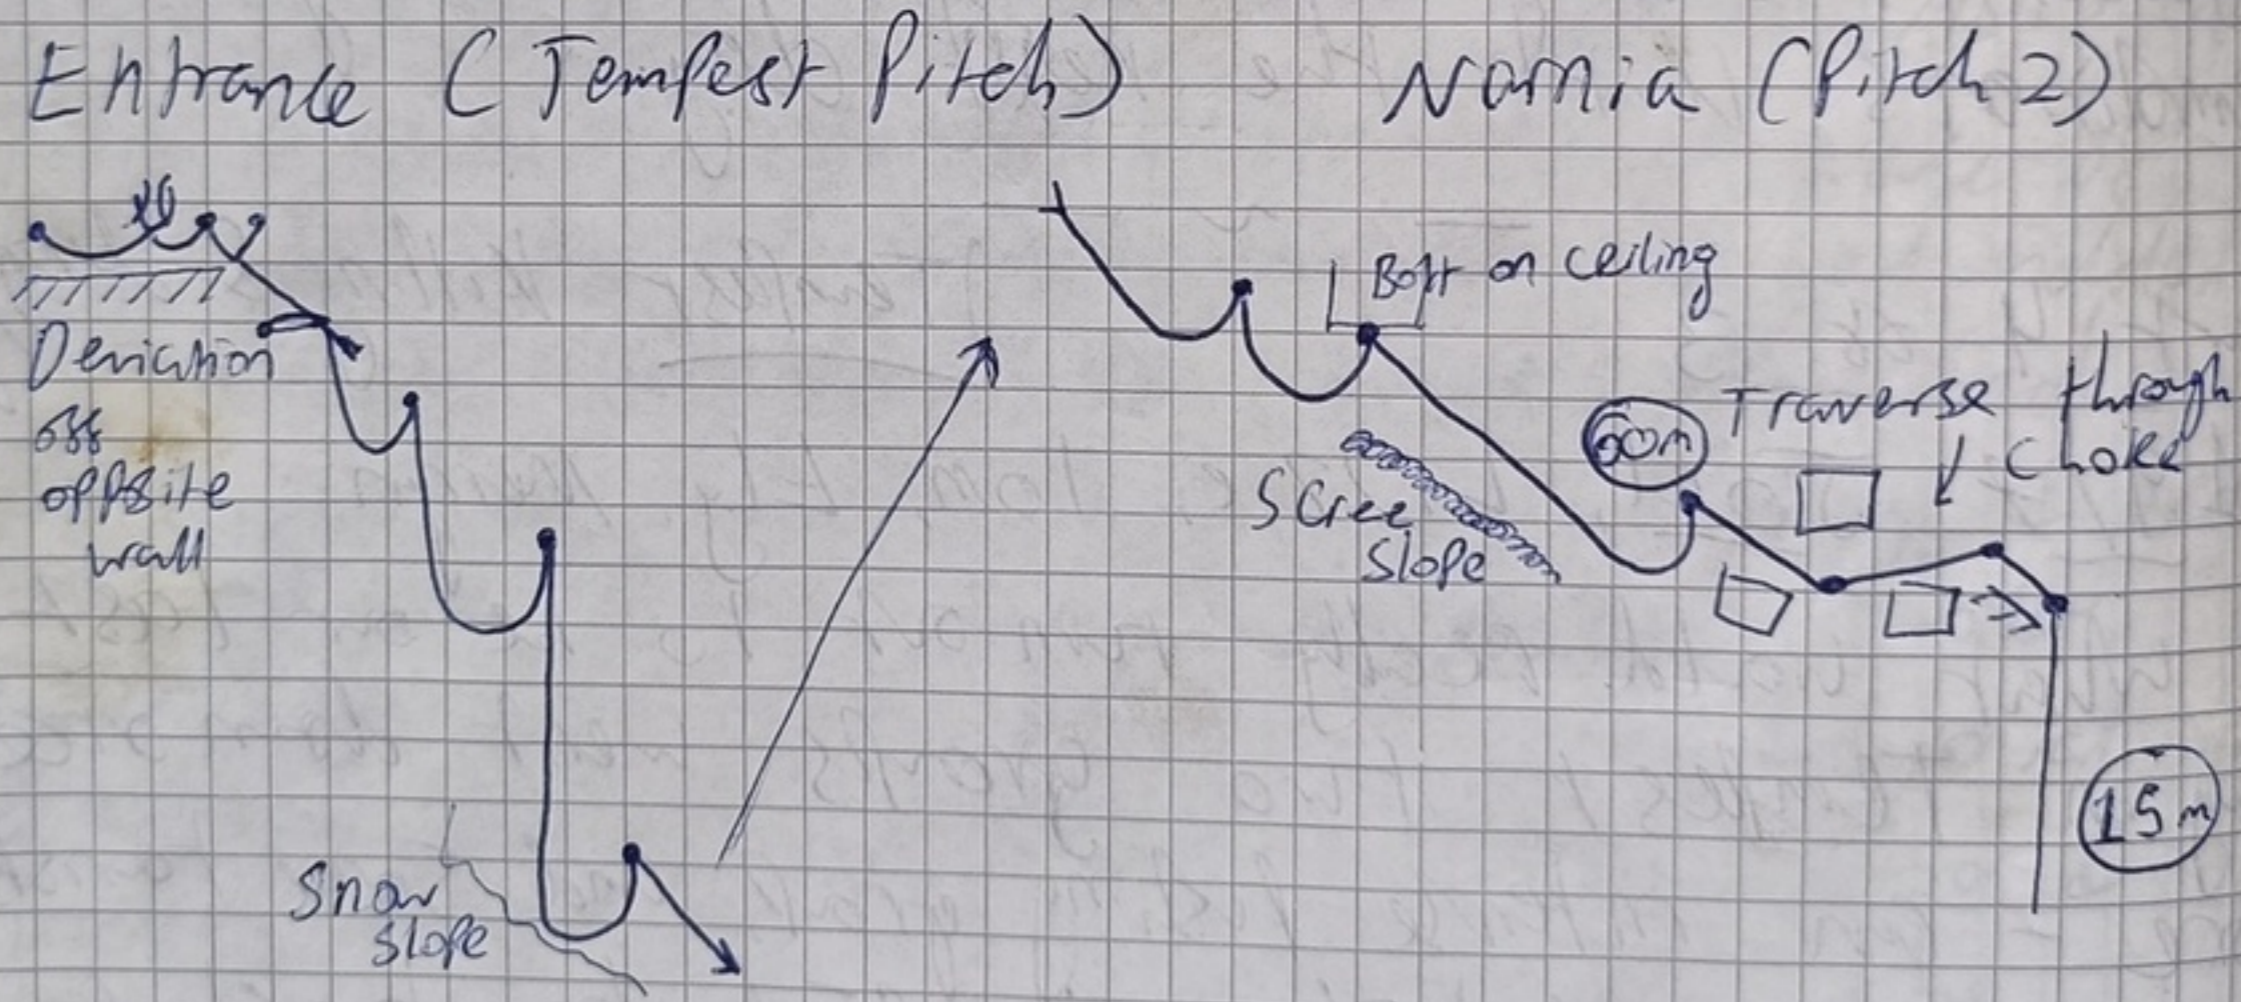 Entrance (Tempest Pitch)
Narnia (Pitch 2)
Deviation
off
opposite
wall
Snow
slope
Bolt on ceiling
Scree
slope
60m
Traverse through
choke
15m